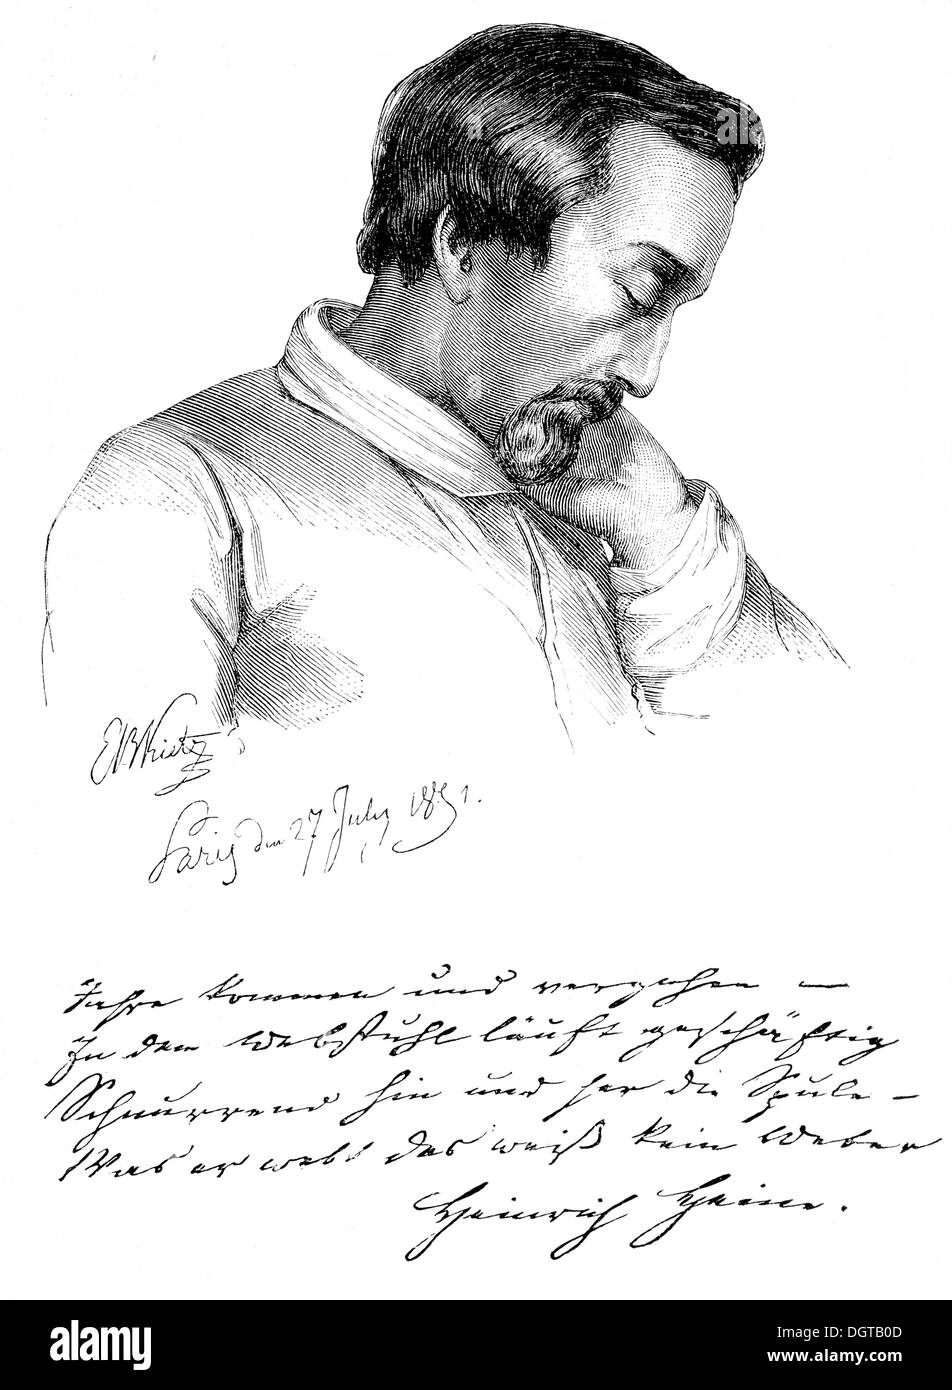 E B Kietz
Paris den 27 July 1851.
Jahre kommen und vergehen —
In dem Webstuhl läuft geschäftig
Schnurrend hin und her die Spule —
Was er webt das weiß kein Weber
Heinrich Heine.
a
a
alamy
Image ID: DGTB0D
www.alamy.com